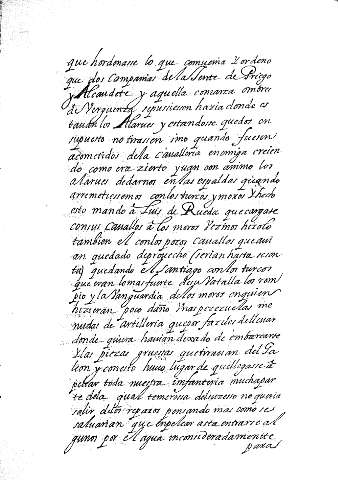 que hordenasse lo que comvenia Y ordeno
que dos Compañias de la Jente de Priego
y Alcaudete y aquella comarca ombres
de Verguenza se pusiesen hazia donde es
tavan los Alarves y estandose quedos en
su puesto no tirasen sino quando fuesen
acometidos de la Cavalleria enemiga creien
do como era zierto yvan con animo los
alarves de darnos en las espaldas quando
arremetiessemos con los turcos y moros Y hecho
esto mando à Luis de Rueda que cargase
con sus Cavallos à los moros hizolo
tambien el con los pocos Cavallos que avi
an quedado de provecho (serian hasta sesen
ta) quedando el Santiago con los turcos
que eran lo mas fuerte de su Vatalla los rom
pio y la Vanguardia de los moros en quien
hizieran poco daño Unas pezezuelas me
nudas de artilleria que por faciles de llevar
donde quiera havian dexado de embarcarse
Y las piezas gruessas que tiravan del Ga
leon y con esto huvo lugar de que llegasse à
pelear toda nuestra infanteria mucha par
te de la qual temerosa del sucesso no queria
salir de los reparos pensando mas como se
salvarian que en pelear asta entrarse al
gunos por el agua inconsideradamente
para